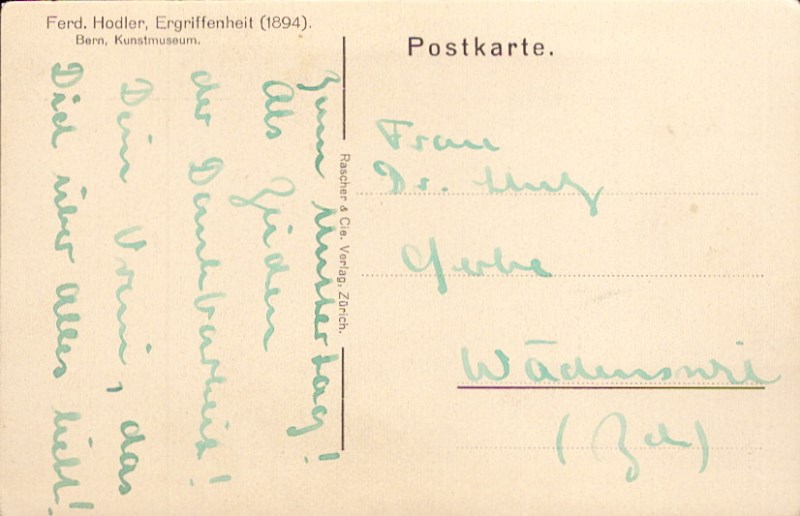 Ferd. Hodler, Ergriffenheit (1894).
Bern, Kunstmuseum.
Postkarte.
Rascher & Cie. Verlag, Zürich.
Zum Muttertag!
Als Zeichen
der Dankbarkeit!
Dein Vreni, das
Dich über alles liebt!
Frau
Dr.
Gerbe
Wädenswil
(Zch)